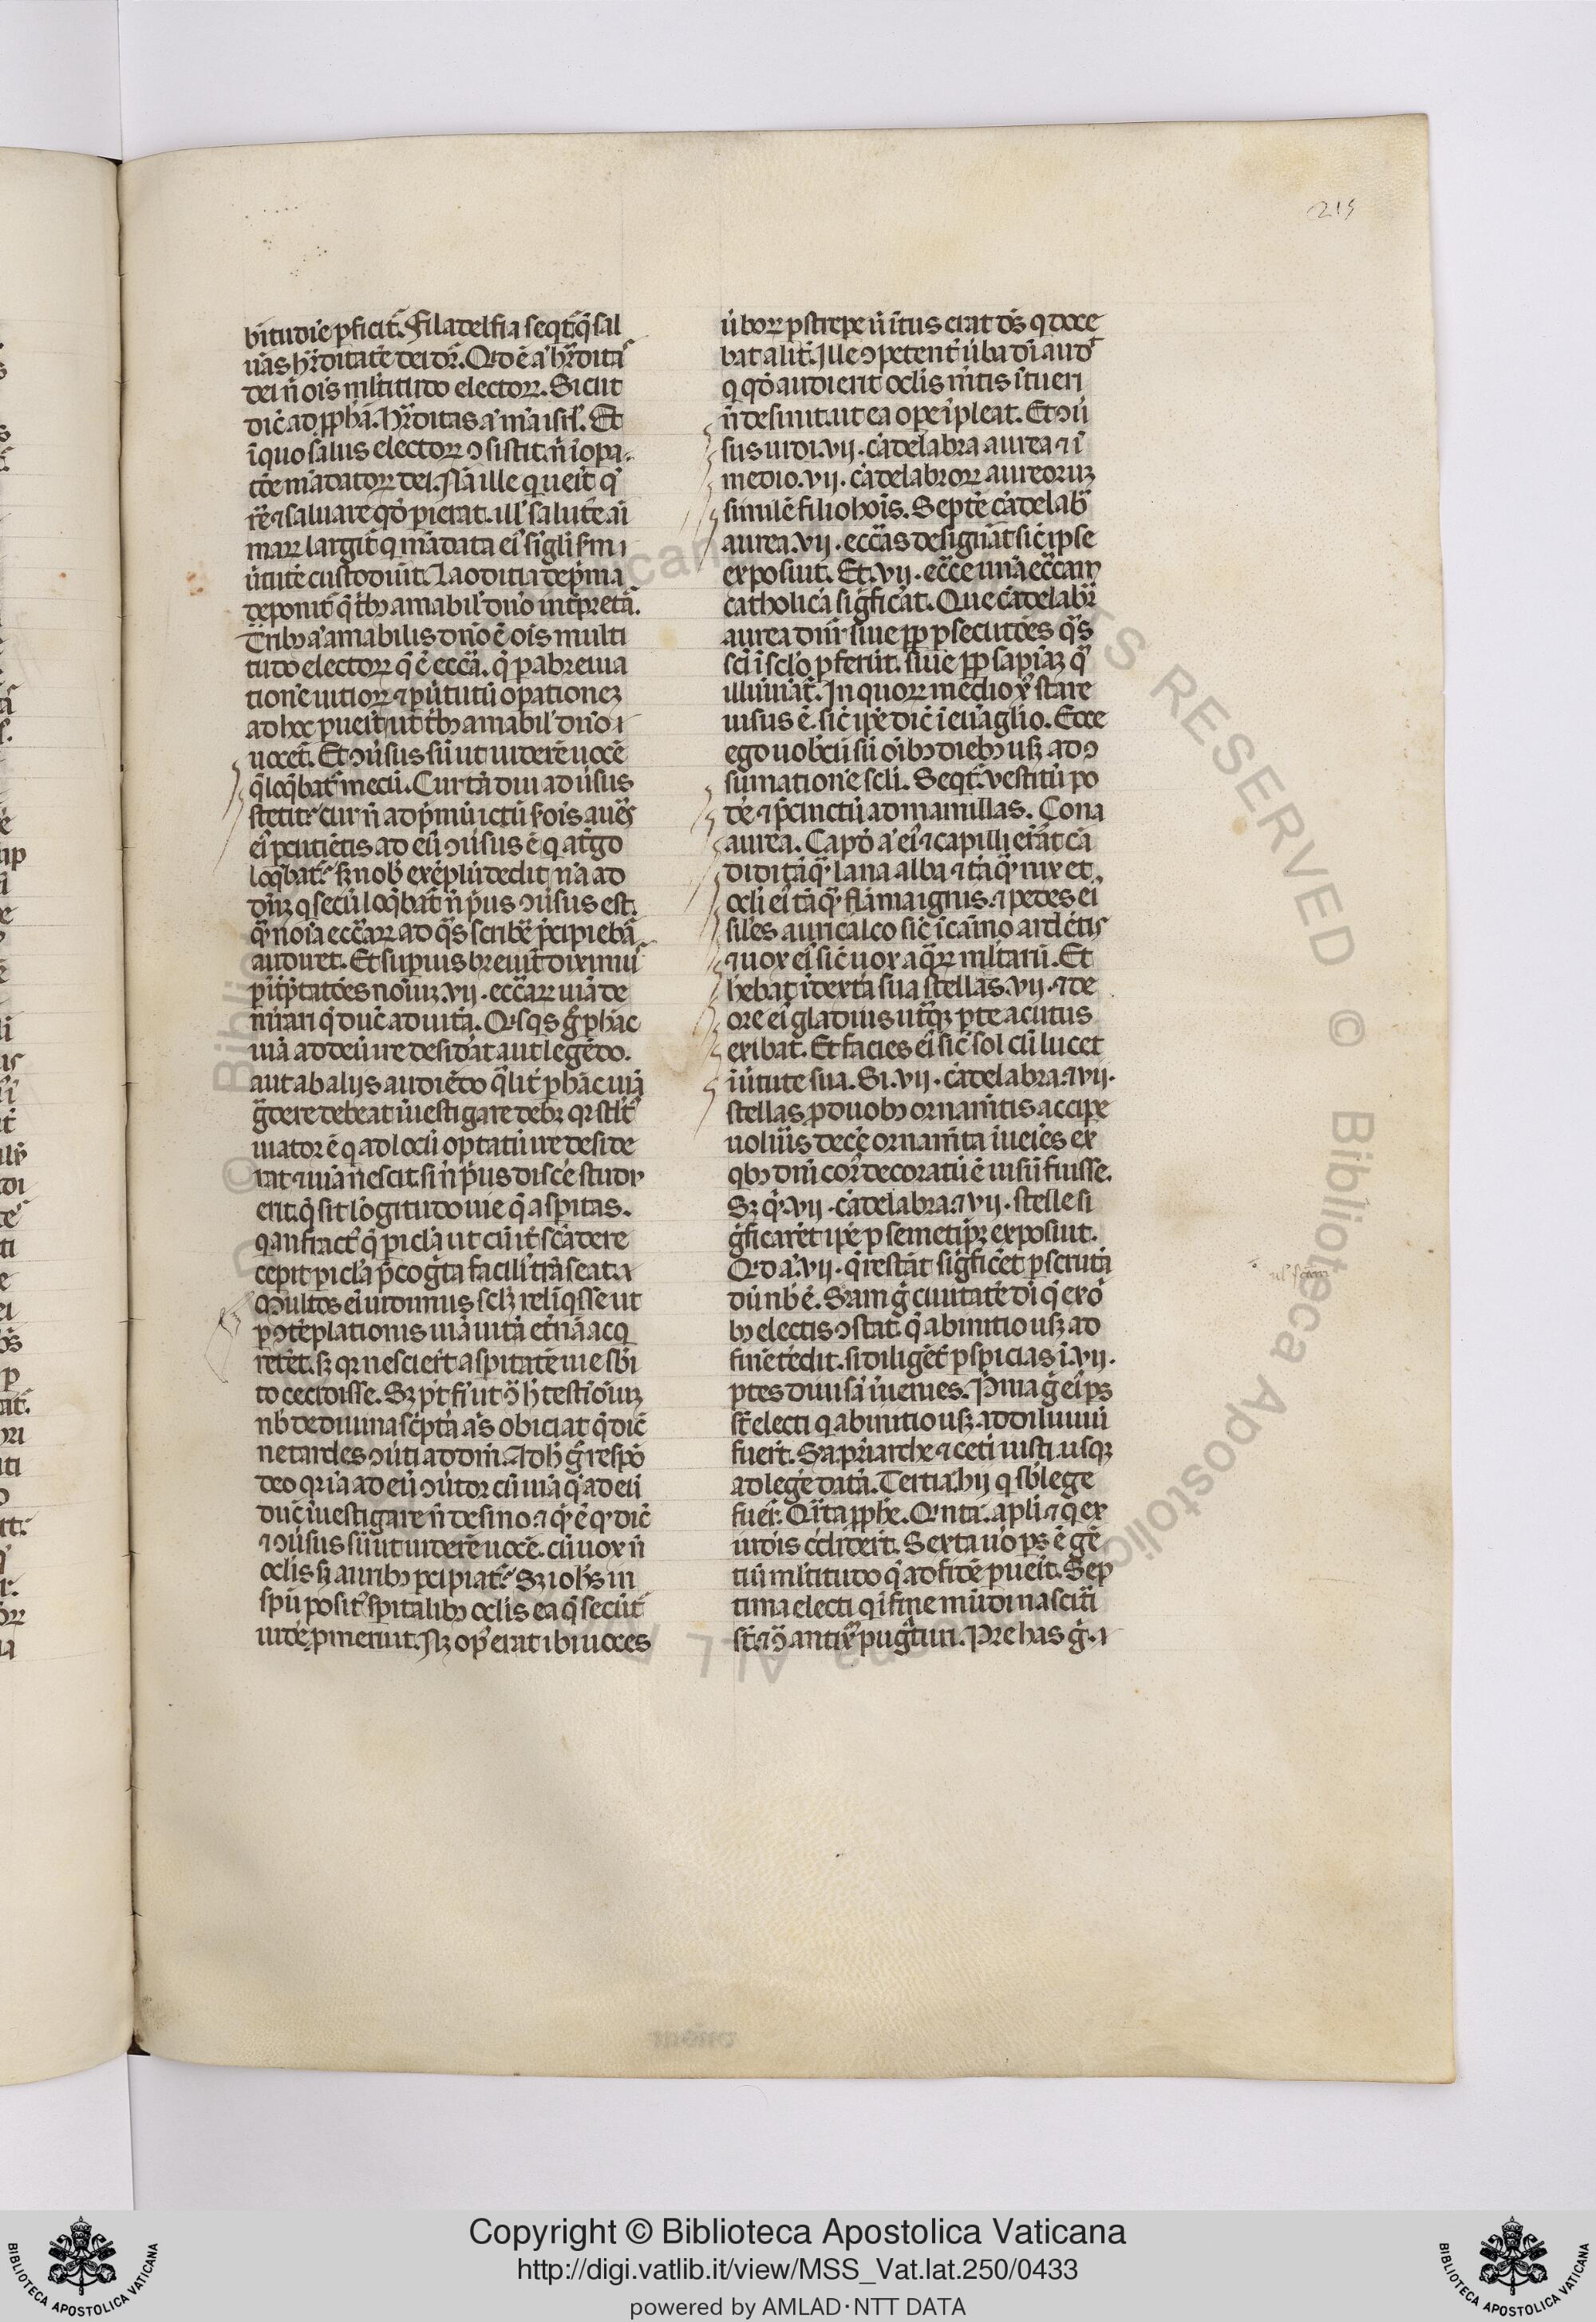 215
bitudīe ꝓficit᷑. Filadelfia seqt᷑ q̄ sal
uās hr̄ditatē dei dr̄. Qd ē a͛ hr̄dita᷑
dei n̄ ois ml̄titudo electoꝝ. Sicut
dic̄ ad ꝓph̄ā. Hr̄ditas a͛ m̄a isrl̄. Et
ī quo salus electoꝝ ↄsistit. n̄ ī opa
tōe mādatoꝝ dei. Nā ille q ueīt q̄
rē ⁊ saluare qd̄ pierat. ill̓ salutē aī
maꝝ largit᷑ q mādata ei᷑ sīgl̓i
ūtutē custodiūt. Laoditia
deponit᷑ q̄ tb̄ꝫ amabil̓ dn̄o īt̄pretā.
Tribꝫ a͛ amabilis dn̄o ē ois multi
tudo electoꝝ q̄ ē ecc̄a. q̄ p abreuia
tionē uitioꝝ ⁊ p ūtutū oꝑationeꝫ
ad hoc pueīt ut tb̄ꝫ amabil̓ dn̄o ī
uocet᷑. Et ↄūsus sū ut uiderē uocē
q̄ loq̄bat᷑ mecū. Cur tā diu ad ūsus
stetit᷑ cur n̄ ad p̄mū ictū
ei᷑ ꝑcutiētis ad eū ↄūsus ē q at͛go
loq̄bat᷑. sꝫ nob̄ exēplū dedit nā ad
dn̄ꝫ q secū loq̄bat᷑ n̄ p̄us ↄūsus est.
q̄ noīa ecc̄aꝝ ad q̄s scribē p̄cipiebā᷑
audiret. Et supius breuit᷑ diximus
p īt̄p̄tatōes noīuꝫ .vij. ecc̄aꝝ uiā de
mr̄ari q̄ duc̄ ad uitā. Qͥsqs g̊ ꝑ hāc
uiā ad deū ire desid̄at aut legēdo.
aut ab alijs audiēdo q̄lit᷑ ꝑ hāc uiā
g̊dere debeat īuestigare debꝫ
uiator ē q ad locū optatū ire deside
rat ⁊ uiā nescit. si n̄ p̄us discē studu
erit. q̄ sit lōgitudo uie q̄ aspitas.
q anfract᷑ q̄ picl̄a ut cū it᷑ scādere
cepit picl̄a p̄cog̊ta facili᷑ trāseat.
Multos ei᷑ uidimus sclꝫ reliq̄sse ut
ꝑ ↄtēplationis uiā uitā et᷑nā acq
rerēt. sꝫ qꝛ nescier̄t aspitatē uie sb̄i
to cecidisse. Sꝫ
de diuina sc̄pt᷑a as obiciat q̄ dic̄
ne tardes ↄūti ad dn̄m. Ad h̄ g̊ respō
deo qꝛ ia ad eū ↄūtor cū uiā q̄ ad eū
duc̄ īuestigare n̄ desino. ⁊ q̄ ē q̄ dic̄
⁊ ↄūsus sū ut uiderē uocē. cū uox n̄
oclis sꝫ auribꝫ ꝑcipiat᷑. Sꝫ ioh̄s in
spū posit᷑ spitalibꝫ oclis ea q̄ secūt᷑
uidē ꝓmeruit. Nꝫ op᷑ erat ibi uoces
ūboꝝ ꝑstrepe ū ītus erat ds̄ q doce
bat alit᷑. Ille ↄpetent᷑ ūba dn̄i aud᷑
q qd̄ audierit oclis mītis ītueri
n̄ desinit. ut ea oꝑe īpleat. Et ↄū
sus uidi .vij. cādelabra aurea ⁊ ī
medio .vij. cādelabroꝝ aureoruꝫ
similē filio hoīs. Septē cādelab᷑
aurea .vij. ecc̄as designāt sic̄ ipse
exposiut. Et .vij. ecc̄e unā ecc̄am
catholicā sig̊ficāt. Que cādelab᷑
aurea dnr̄ siue pp ꝑsecutōes q̄s
sc̄i ī sclo ꝑferūt. siue pp sapīaꝫ q̄
illuīnāt᷑. In quoꝝ medio xp̄ stare
uisus ē. sic̄ ip̄e dic̄ ī euāglio. Ecce
ego uob̄cū sū oībꝫ diebꝫ usꝫ ad ↄ
sumationē scli. Seqt᷑. vestitū po
dē ⁊ p̄cinctū ad mamillas. Çona
aurea. Capd̄ a͛ ei᷑ ⁊ capilli erāt cā
didi tāq̄ lana alba ⁊ tāq̄ nix et
ocli ei᷑ tāq̄ flāma ignis. ⁊ pedes ei᷑
siles auricalco sic̄ ī caīno ardētis
⁊ uox ei᷑ sic̄ uox aq̄ꝝ ml̄taꝝ. Et
hebat ī dextᷓa sua stellas .vij. ⁊ de
ore ei᷑ gladius utᷓqꝫ ꝑte acutus
exibat. Et facies ei᷑ sic̄ sol cū lucet
ī ūtute sua. Si .vij. cādelabra. ⁊ vij.
stellas ꝓ duobꝫ ornam̄tis accipe
uoluis decē ornam̄ta īueīes ex
qbꝫ dn̄i cor᷑ decoratū ē uisū fuisse.
Sꝫ q̄ .vij. cādelabra. ⁊ vij. stelle si
g̊ficarēt ip̄e ꝑ semetipꝫ exposiut.
Qd a͛ .vij. q̄ restāt sig̊ficēt ꝑscrutā
dū nb̄ ē. Sc̄am g̊ ciuitatē dī
bꝫ electis ↄstat᷑. q̄ ab initio usꝫ ad
finē tēdit. si diligēt᷑ ꝑspicias ī .vij.
ꝑtes diuisā īuenies. P̄ma g̊ ei᷑ ꝑs
st̄ electi q ab initio usꝫ ad diluuiū
fuer̄t. Sc̄a pr̄iarche ⁊ cet᷑i iusti usqꝫ
ad legē datā. Tertia hij q sb̄ lege
fuer̄t. Qͣrta ꝓph̄e. Qͥnta apl̄i ⁊ q ex
iudis c̄dider̄t. Sexta uo ꝑs ē gē
tiū ml̄titudo q̄ ad fidē pueīt. Sep
tima electi q ī fine mūdi nascit᷑i
st̄. ⁊ ↄ̄ antixp̄ pug̊turi. Pre has g̊ ī
Copyright © Biblioteca Apostolica Vaticana
http://digi.vatlib.it/view/MSS_Vat.lat.250/0433
powered by AMLAD·NTT DATA
BIBLIOTECA APOSTOLICA VATICANA
BIBLIOTECA APOSTOLICA VATICANA